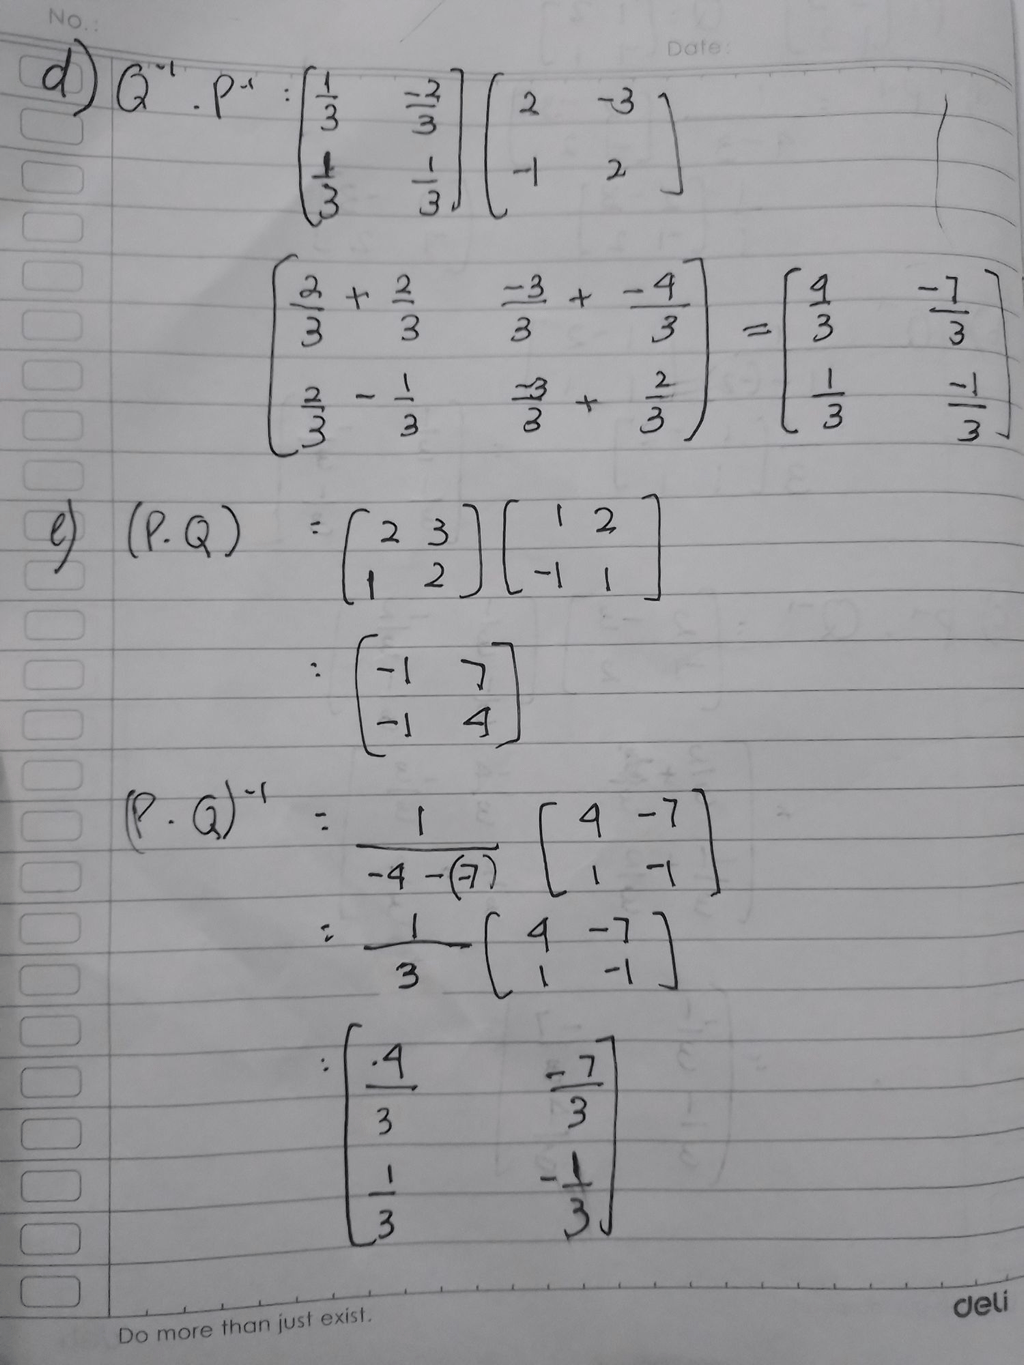 No.:
Date:
d) Q⁻¹ . P⁻¹ : [1/3 -2/3; 1/3 1/3] [2 -3; -1 2]
[2/3 + 2/3 -3/3 + -4/3; 2/3 - 1/3 -3/3 + 2/3] = [4/3 -7/3; 1/3 -1/3]
e) (P.Q) = [2 3; 1 2] [1 2; -1 1]
: [-1 7; -1 4]
(P . Q)⁻¹ = 1/(-4 -(-7)) [4 -7; 1 -1]
= 1/3 [4 -7; 1 -1]
: [4/3 -7/3; 1/3 -1/3]
Do more than just exist.
deli